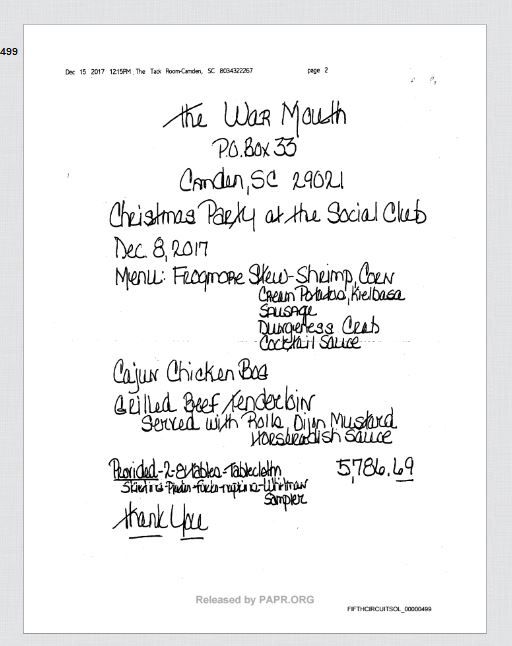 499
Dec 15 2017 12:15PM The Tack Room-Camden, SC 8034322267 page 2
the War Mouth
P.O. Box 33
Camden, SC 29021
Christmas Party at the Social Club
Dec. 8, 2017
Menu: Frogmore Stew-Shrimp, Corn
Cream Potatoes, Kielbasa
Sausage
Dungeness Crab
Cocktail Sauce
Cajun Chicken Bog
Grilled Beef Tenderloin
Served with Rolls, Dijon Mustard
Horseradish Sauce
Provided-2-8'tables-Tablecloth 5,786.69
-forks-napkins-Whitman
Sampler
thank You
Released by PAPR.ORG
FIFTHCIRCUITSOL_00000499